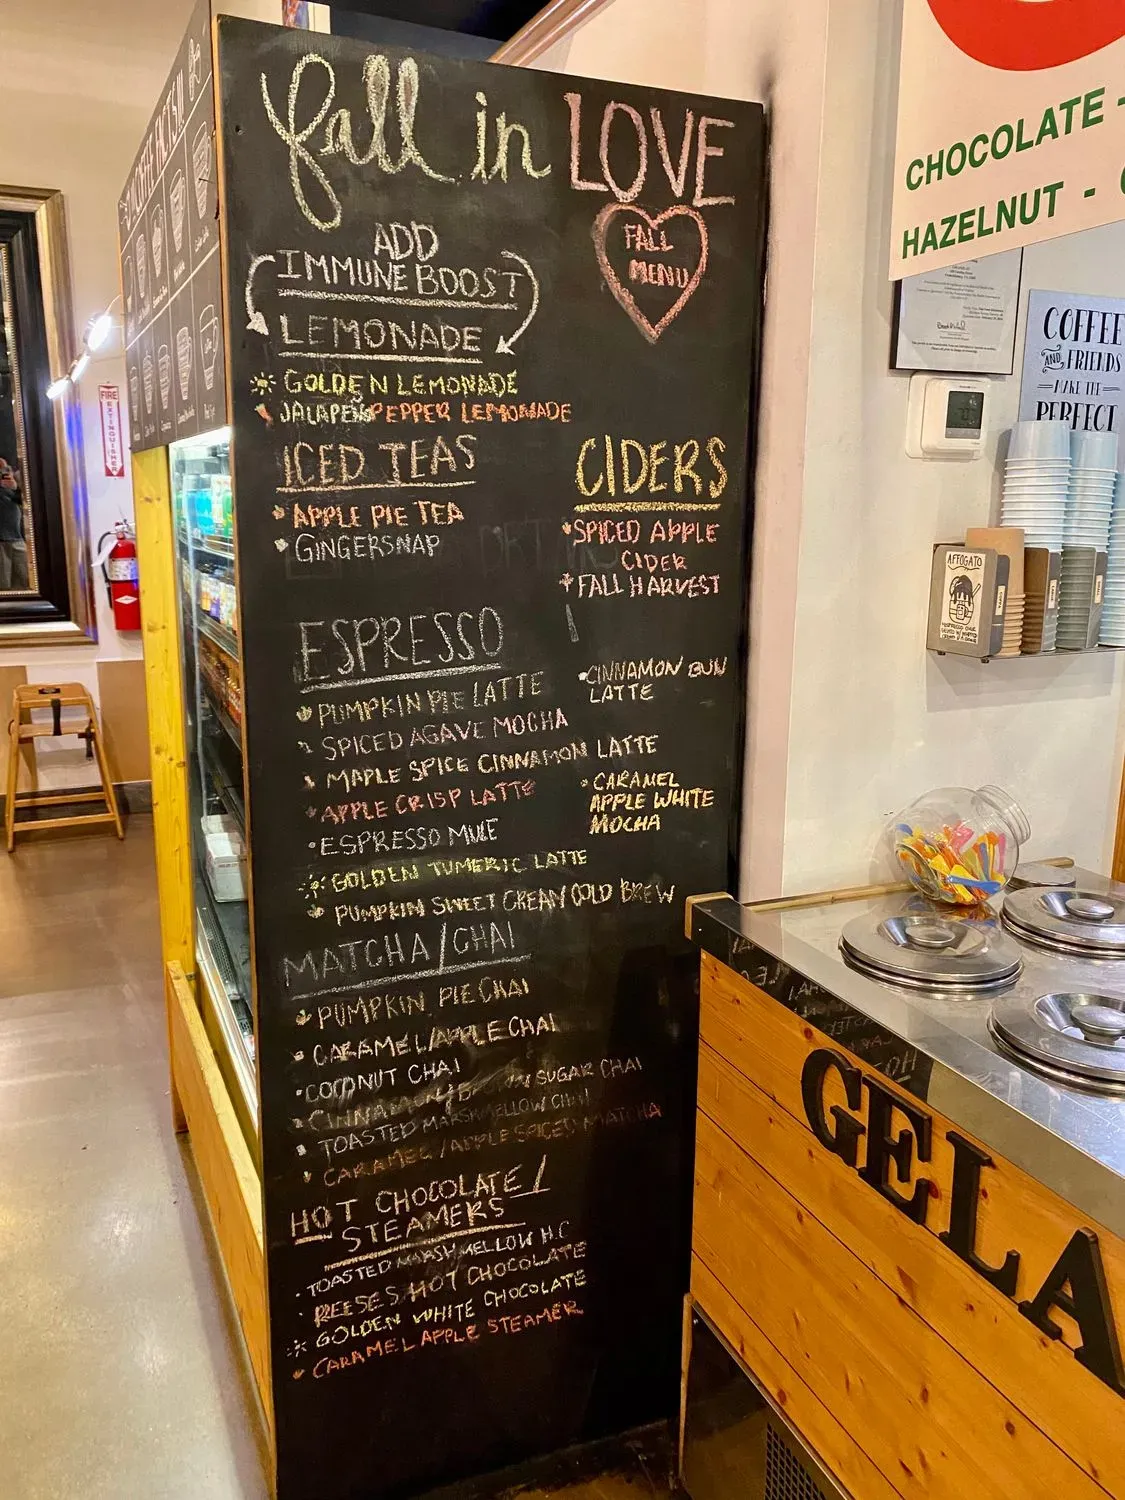 fall in LOVE
FALL
MENU
ADD
IMMUNE BOOST
LEMONADE
GOLDEN LEMONADE
JALAPENO PEPPER LEMONADE
ICED TEAS
APPLE PIE TEA
GINGERSNAP
CIDERS
SPICED APPLE
CIDER
FALL HARVEST
ESPRESSO
PUMPKIN PIE LATTE
SPICED AGAVE MOCHA
MAPLE SPICE CINNAMON LATTE
APPLE CRISP LATTE
ESPRESSO MULE
GOLDEN TUMERIC LATTE
PUMPKIN SWEET CREAM COLD BREW
CINNAMON BUN
LATTE
CARAMEL
APPLE WHITE
MOCHA
MATCHA/CHAI
PUMPKIN PIE CHAI
CARAMEL/APPLE CHAI
COCONUT CHAI
CINNAMON/BROWN SUGAR CHAI
TOASTED MARSHMELLOW CHAI
CARAMEL/APPLE SPICED MATCHA
HOT CHOCOLATE/
STEAMERS
TOASTED MARSHMELLOW H.C
REESES HOT CHOCOLATE
GOLDEN WHITE CHOCOLATE
CARAMEL APPLE STEAMER
FIRE
EXTINGUISHER
CHOCOLATE -
HAZELNUT -
COFFEE
AND FRIENDS
MAKE THE
PERFECT
AFFOGATO
GELA